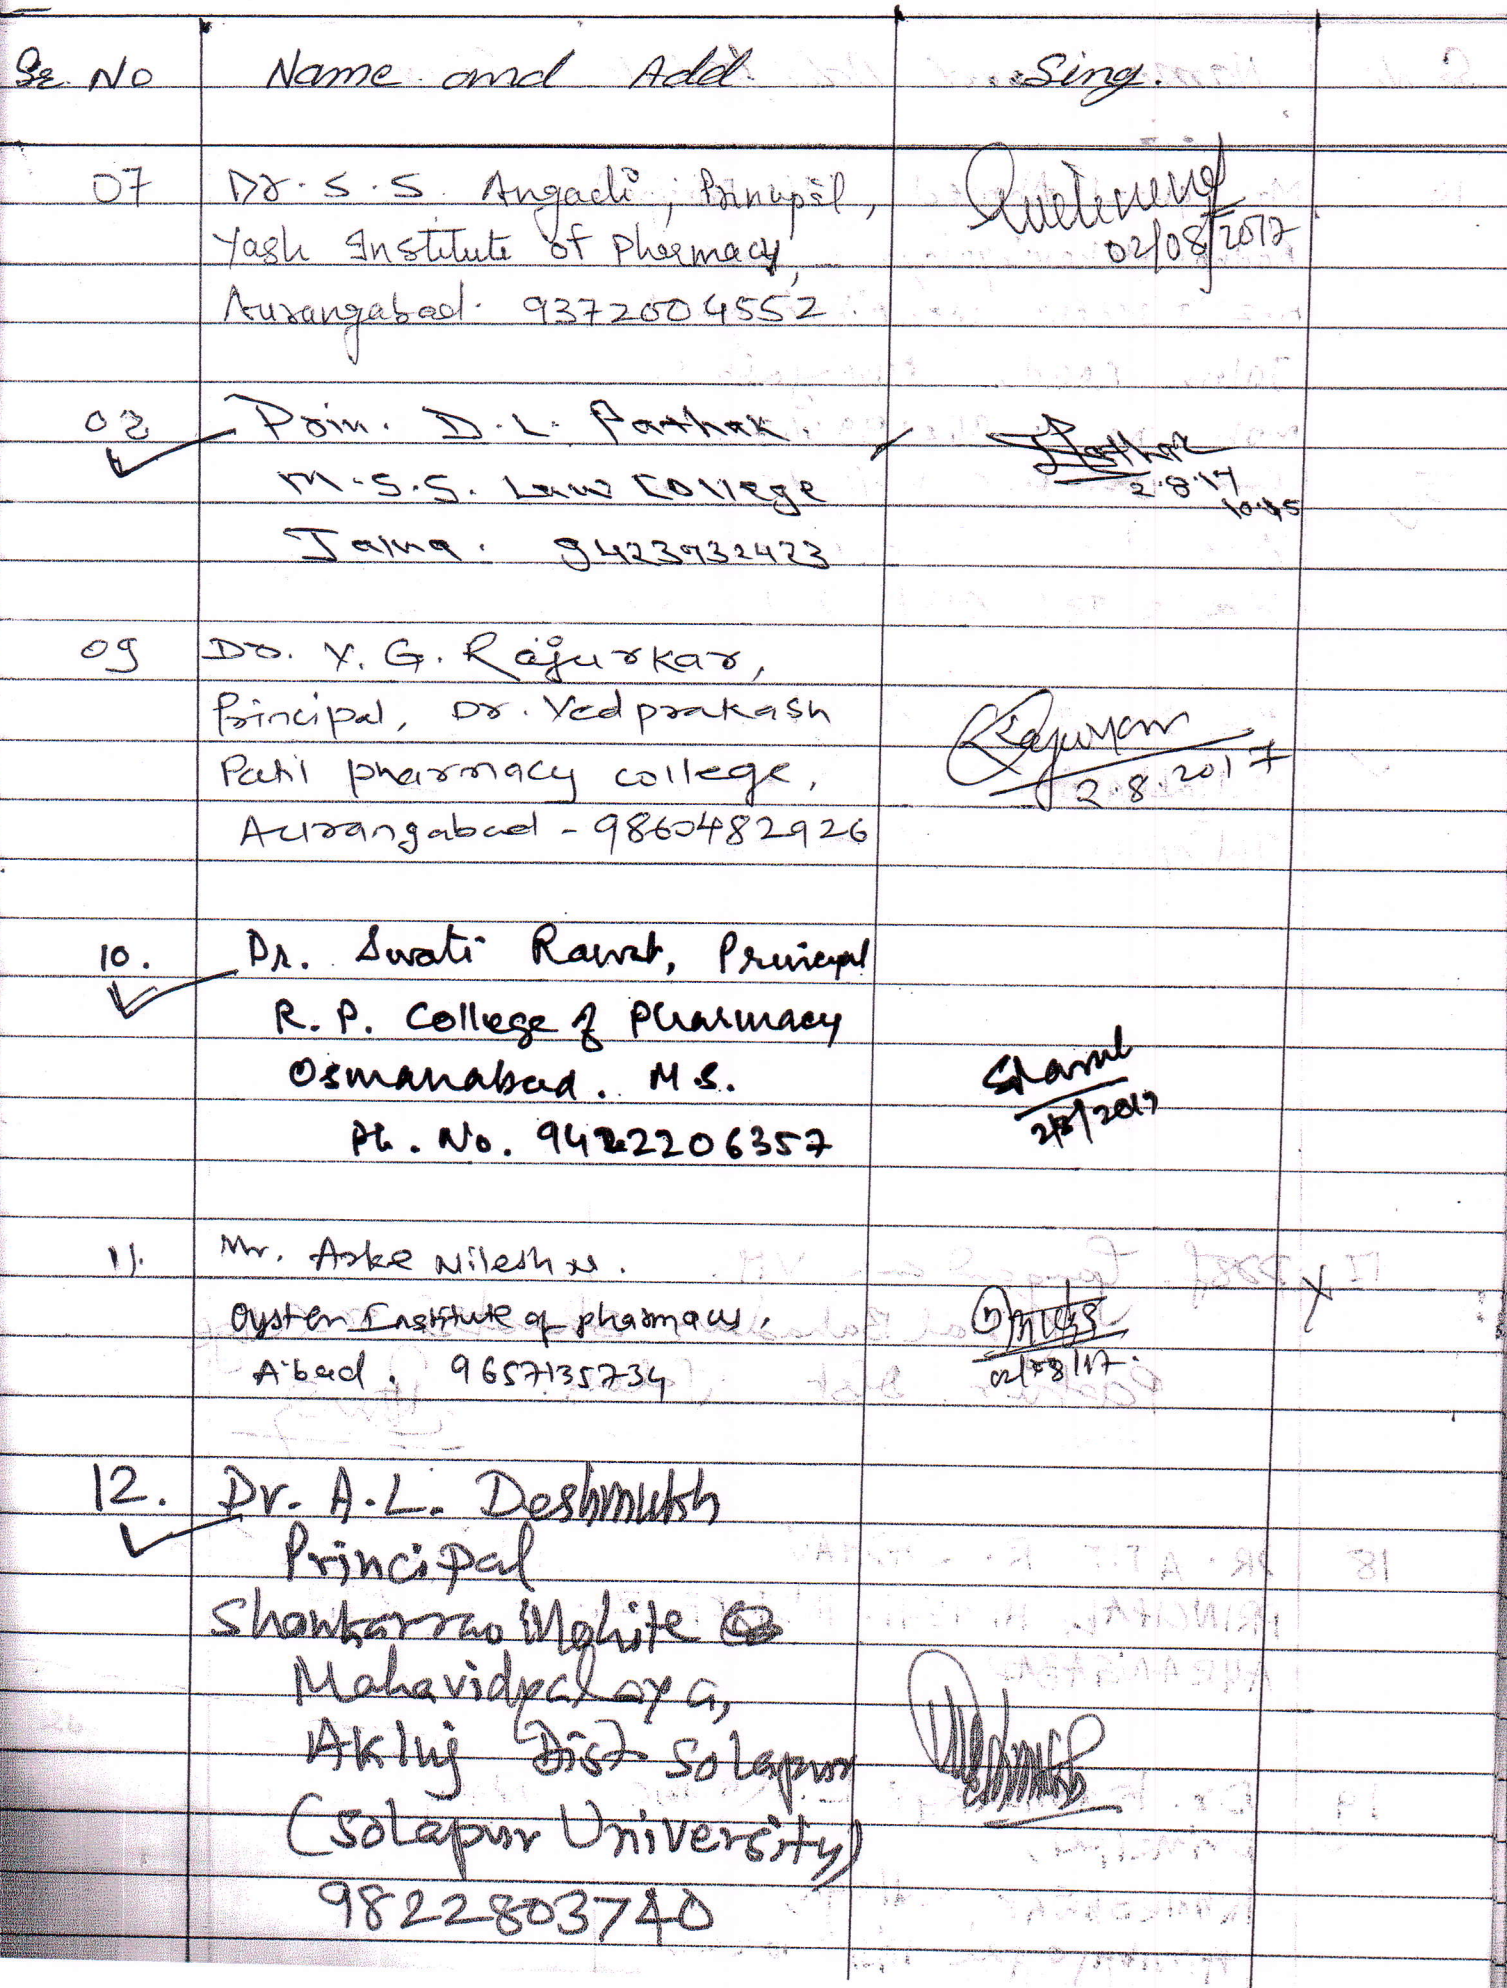 Sr. No Name and Add. Sing.
07 Dr. S. S. Angadi, Principal,
Yash Institute of Pharmacy,
Aurangabad. 9372004552
02/08/2017
08 Prin. D. L. Pathak.
M.S.S. Law College
Jalna. 9423732423
2.8.17
10.45
09 Dr. Y. G. Rajurkar,
Principal, Dr. Vedprakash
Patil pharmacy college,
Aurangabad - 9860482926
2.8.2017
10. Dr. Swati Rawat, Principal
R. P. College of Pharmacy
Osmanabad. M.S.
Ph. No. 9422206357
2/8/2017
11. Mr. Aske Nilesh N.
Oyster Institute of pharmacy,
A'bad. 9657135734
02/08/17.
12. Dr. A. L. Deshmukh
Principal
Shankarrao Mohite
Mahavidyalaya,
Akluj Dist Solapur
(Solapur University)
9822803740